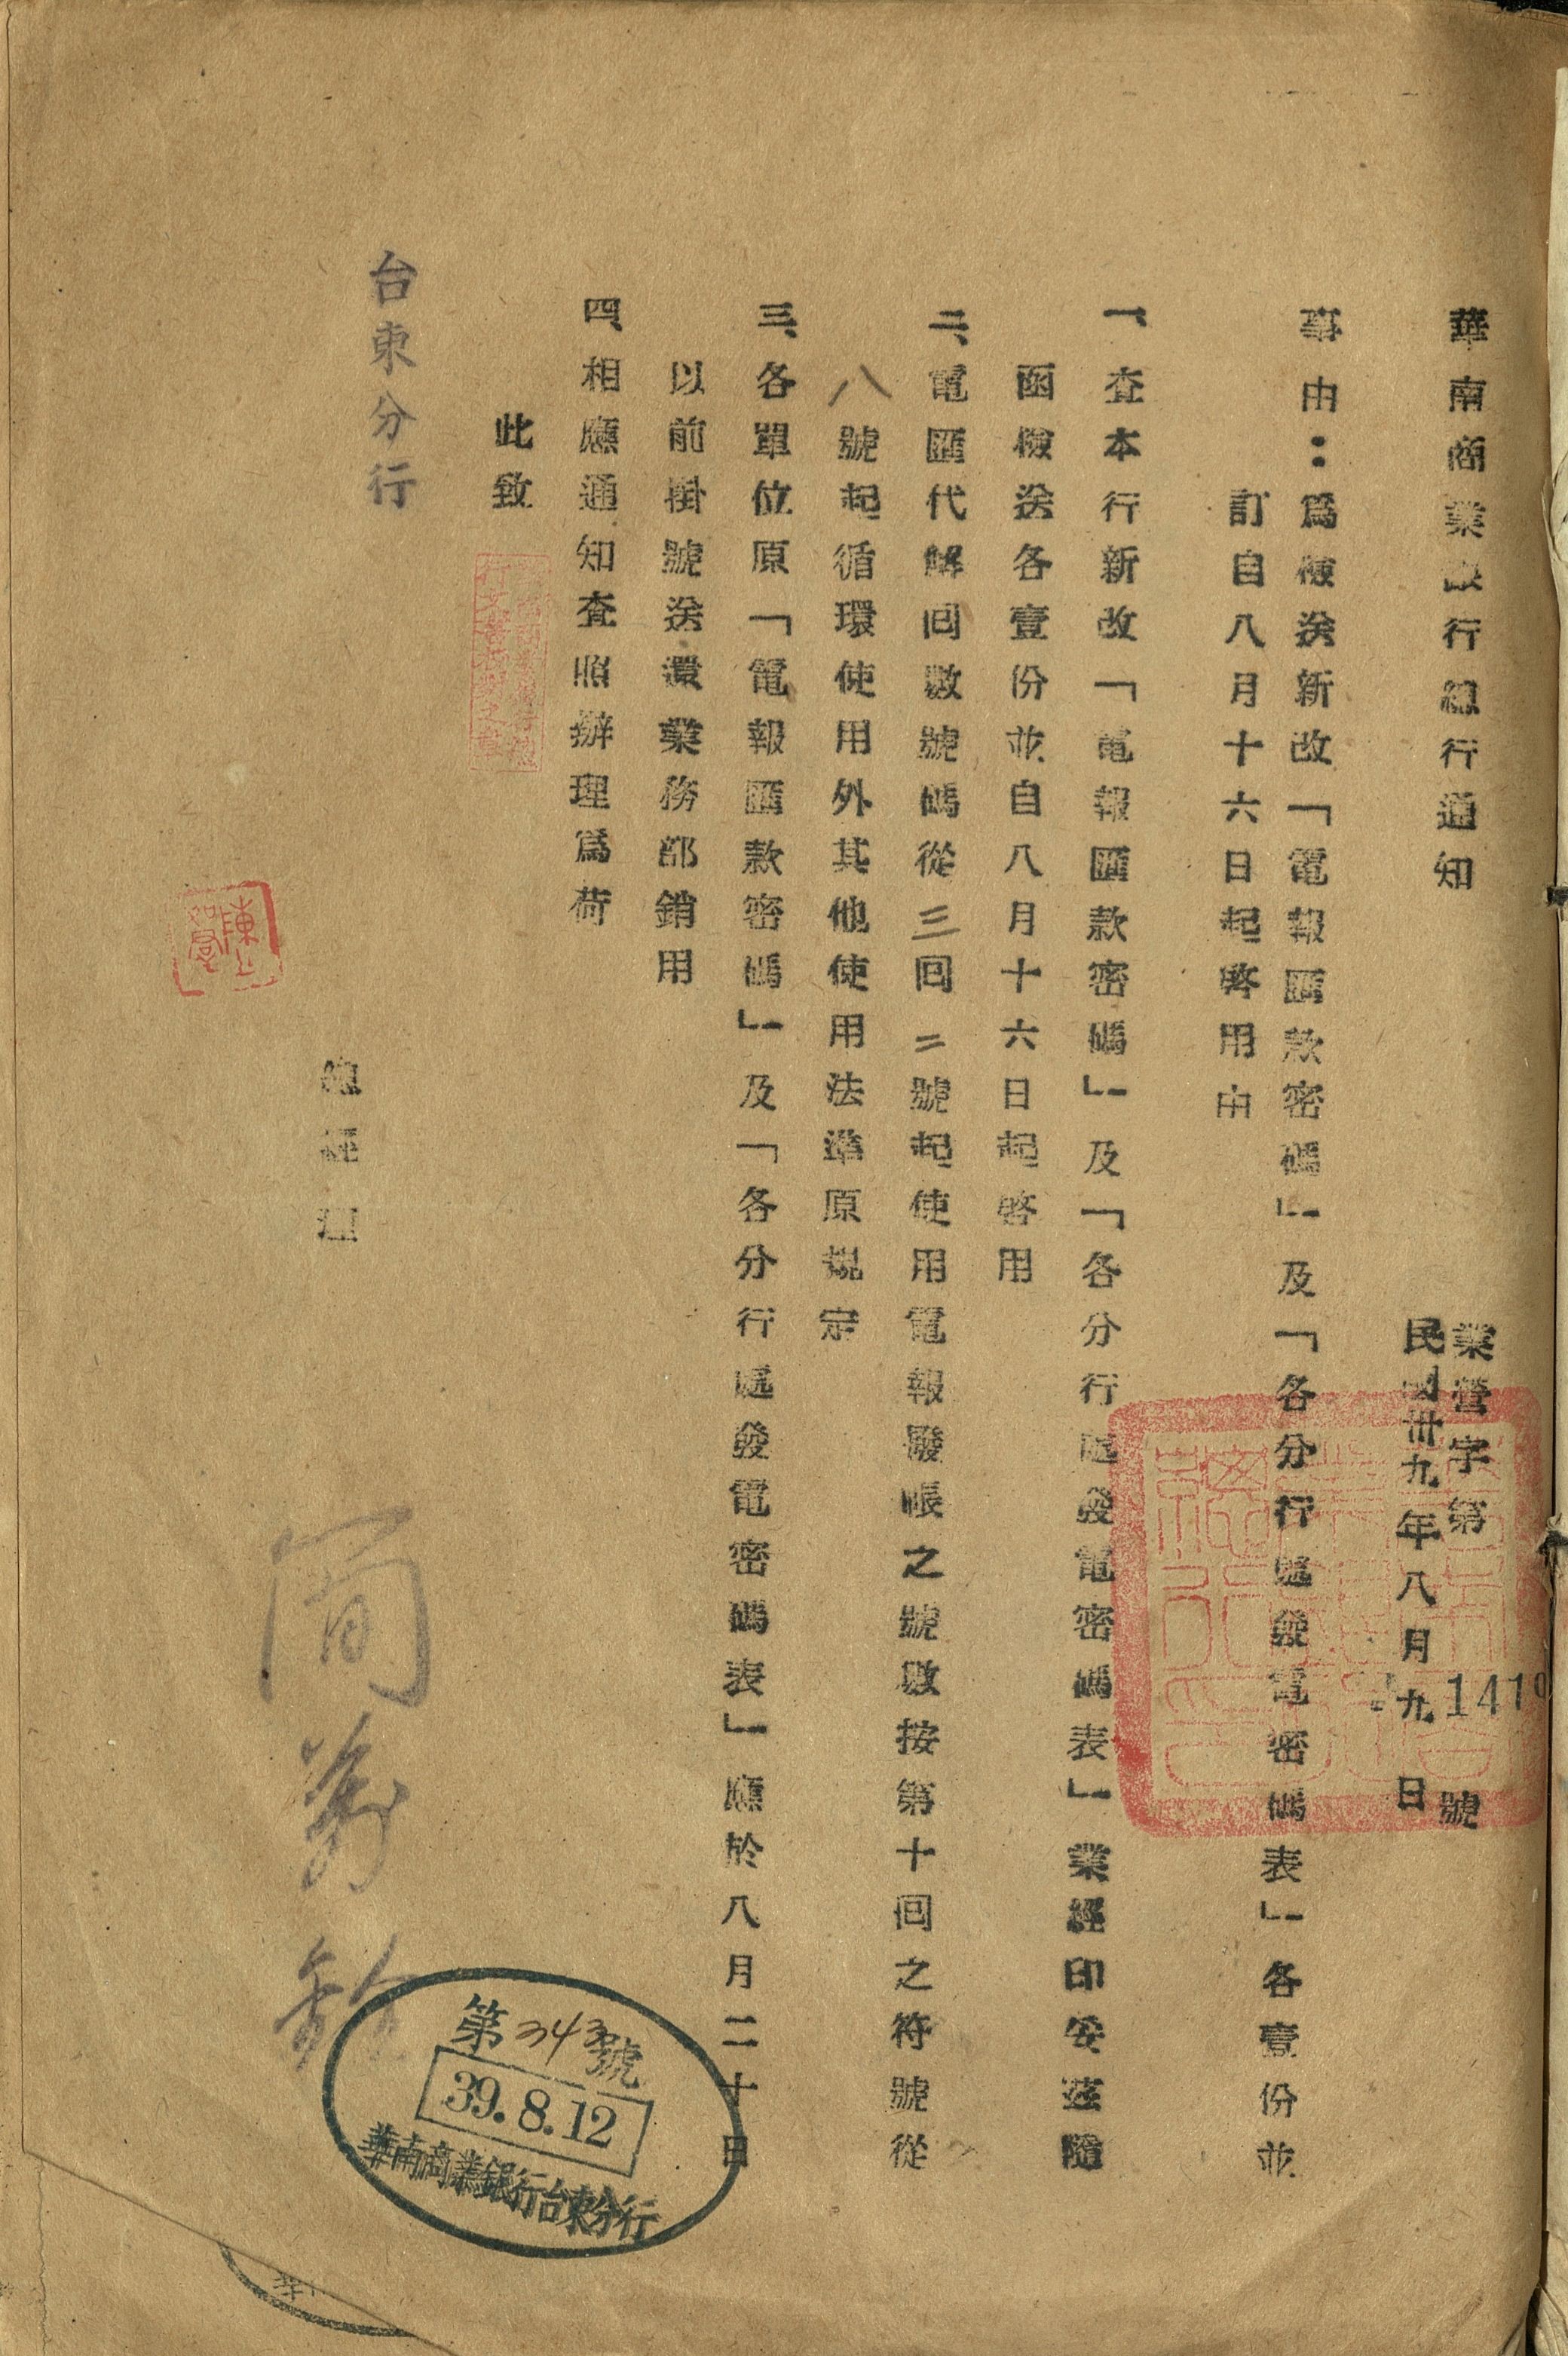 華南商業銀行總行通知
業營字第1419號
民國卅九年八月九日
事由：為檢送新改「電報匯款密碼」及「各分行處發電密碼表」各壹份並
訂自八月十六日起啓用由
一、查本行新改「電報匯款密碼」及「各分行處發電密碼表」業經印妥玆隨
函檢送各壹份並自八月十六日起啓用
二、電匯代解回數號碼從三回二號起使用電報撥帳之號數按第十回之符號從
八號起循環使用外其他使用法準原規定
三、各單位原「電報匯款密碼」及「各分行處發電密碼表」應於八月二十日
以前掛號送還業務部銷用
四、相應通知查照辦理為荷
此致
台東分行
總經理
第343號
39.8.12
華南商業銀行台東分行